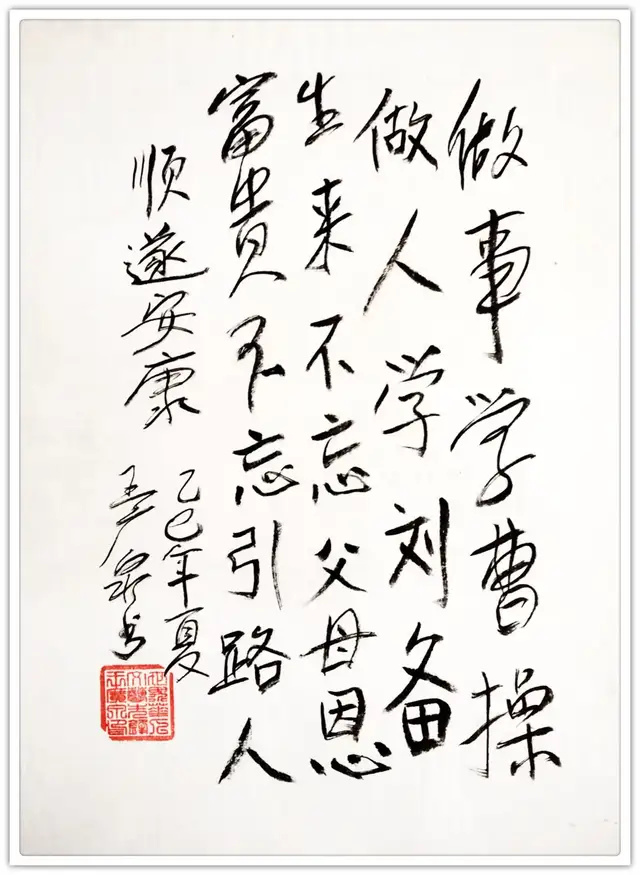 做事学曹操
做人学刘备
生来不忘父母恩
富贵不忘引路人
顺遂安康
乙巳年夏
泉书